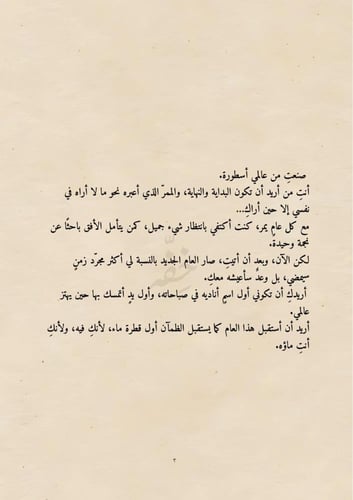 صنعتِ من عالمي أسطورة.
أنتِ من أريد أن تكون البداية والنهاية، والممرّ الذي أعبره نحو ما لا أراه في
نفسي إلا حين أراكِ...
مع كل عامٍ يمر، كنت أكتفي بانتظار شيء جميل، كمن يتأمل الأفق باحثًا عن
نجمة وحيدة.
لكن الآن، وبعد أن أتيتِ، صار العام الجديد بالنسبة لي أكثر مجرّد زمنٍ
سيمضي، بل وعدٌ سأعيشه معكِ.
أريدكِ أن تكوني أول اسمٍ أناديه في صباحاته، وأول يدٍ أتمسك بها حين يهتز
عالمي.
أريد أن أستقبل هذا العام كما يستقبل الظمآن أول قطرة ماء، لأنكِ فيه، ولأنكِ
أنتِ ماؤه.
٢